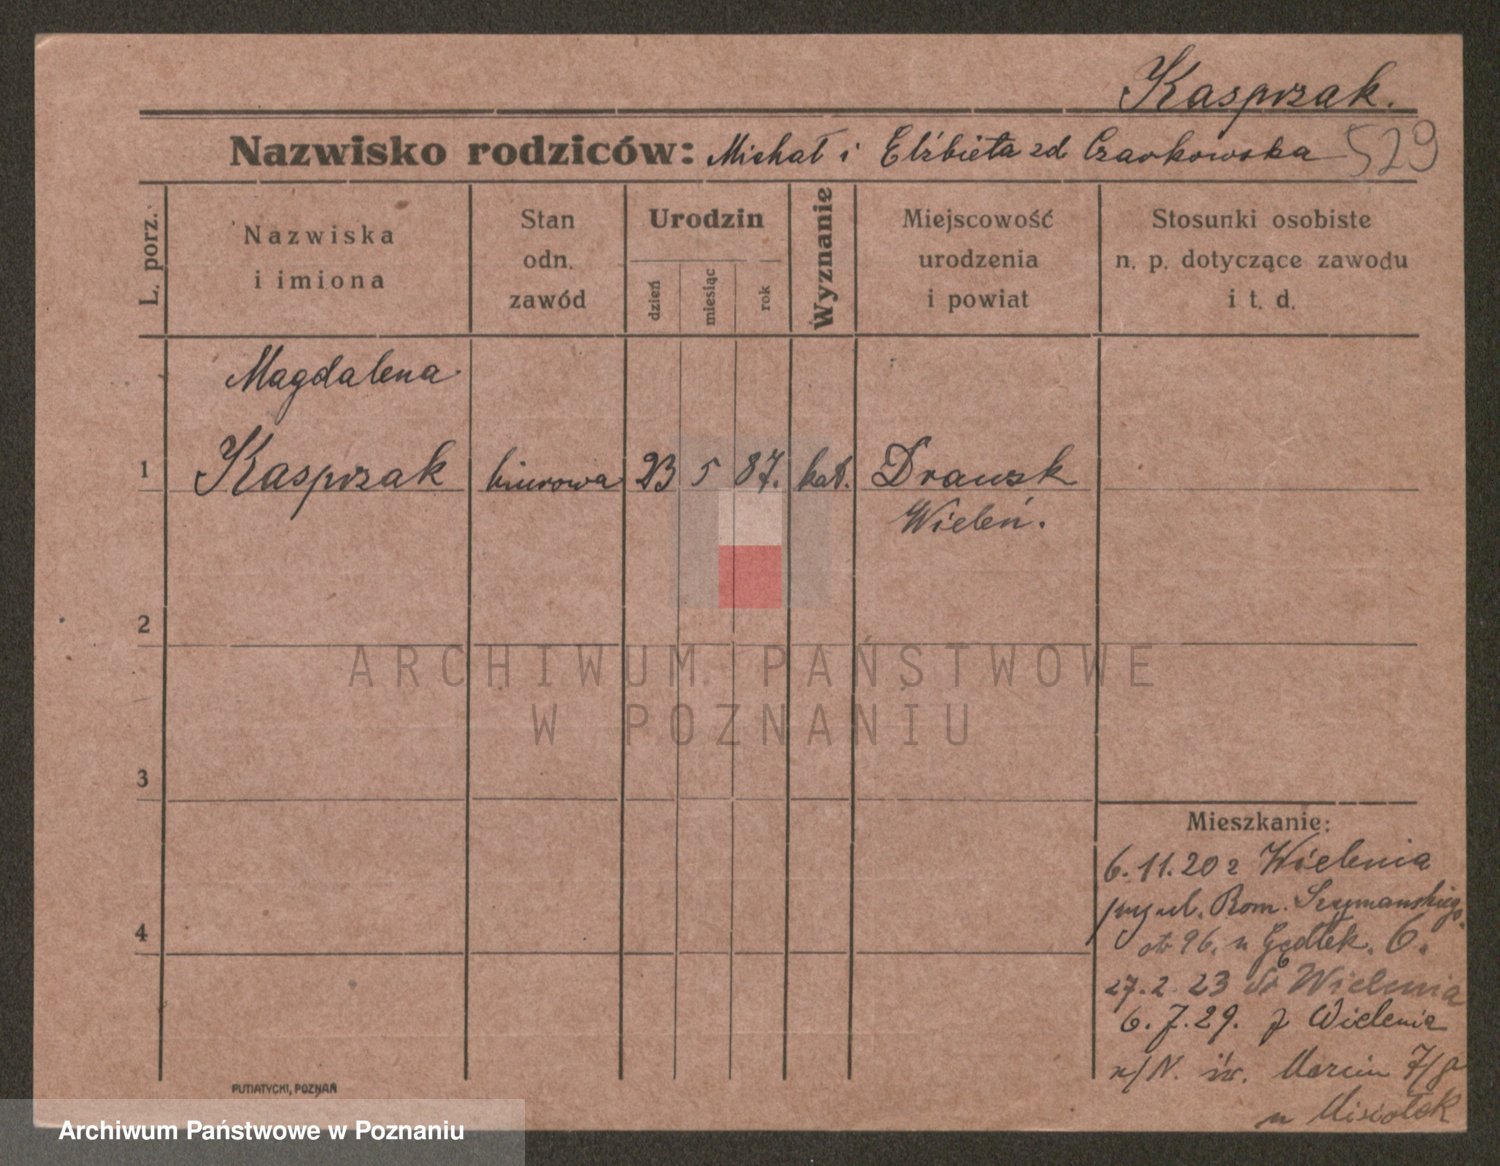 Kasprzak.
Nazwisko rodziców: Michał i Elżbieta zd Czarkowska 529
L. porz.
Nazwiska
i imiona
Stan
odn.
zawód
Urodzin
dzień
miesiąc
rok
Wyznanie
Miejscowość
urodzenia
i powiat
Stosunki osobiste
n. p. dotyczące zawodu
i t. d.
Magdalena
1 Kasprzak biurowa 23 5 87. kat. Drawsk
Wieleń.
2
ARCHIWUM PAŃSTWOWE
W POZNANIU
3
Mieszkanie:
6.11.20 z Wielenia
przy ul. Rom. Szymańskiego
96. u 6.
4
27.2.23 do Wielenia
6.7.29. z Wielenia
św. Marcin 7/
u Misiołek
PUTIATYCKI, POZNAŃ
Archiwum Państwowe w Poznaniu